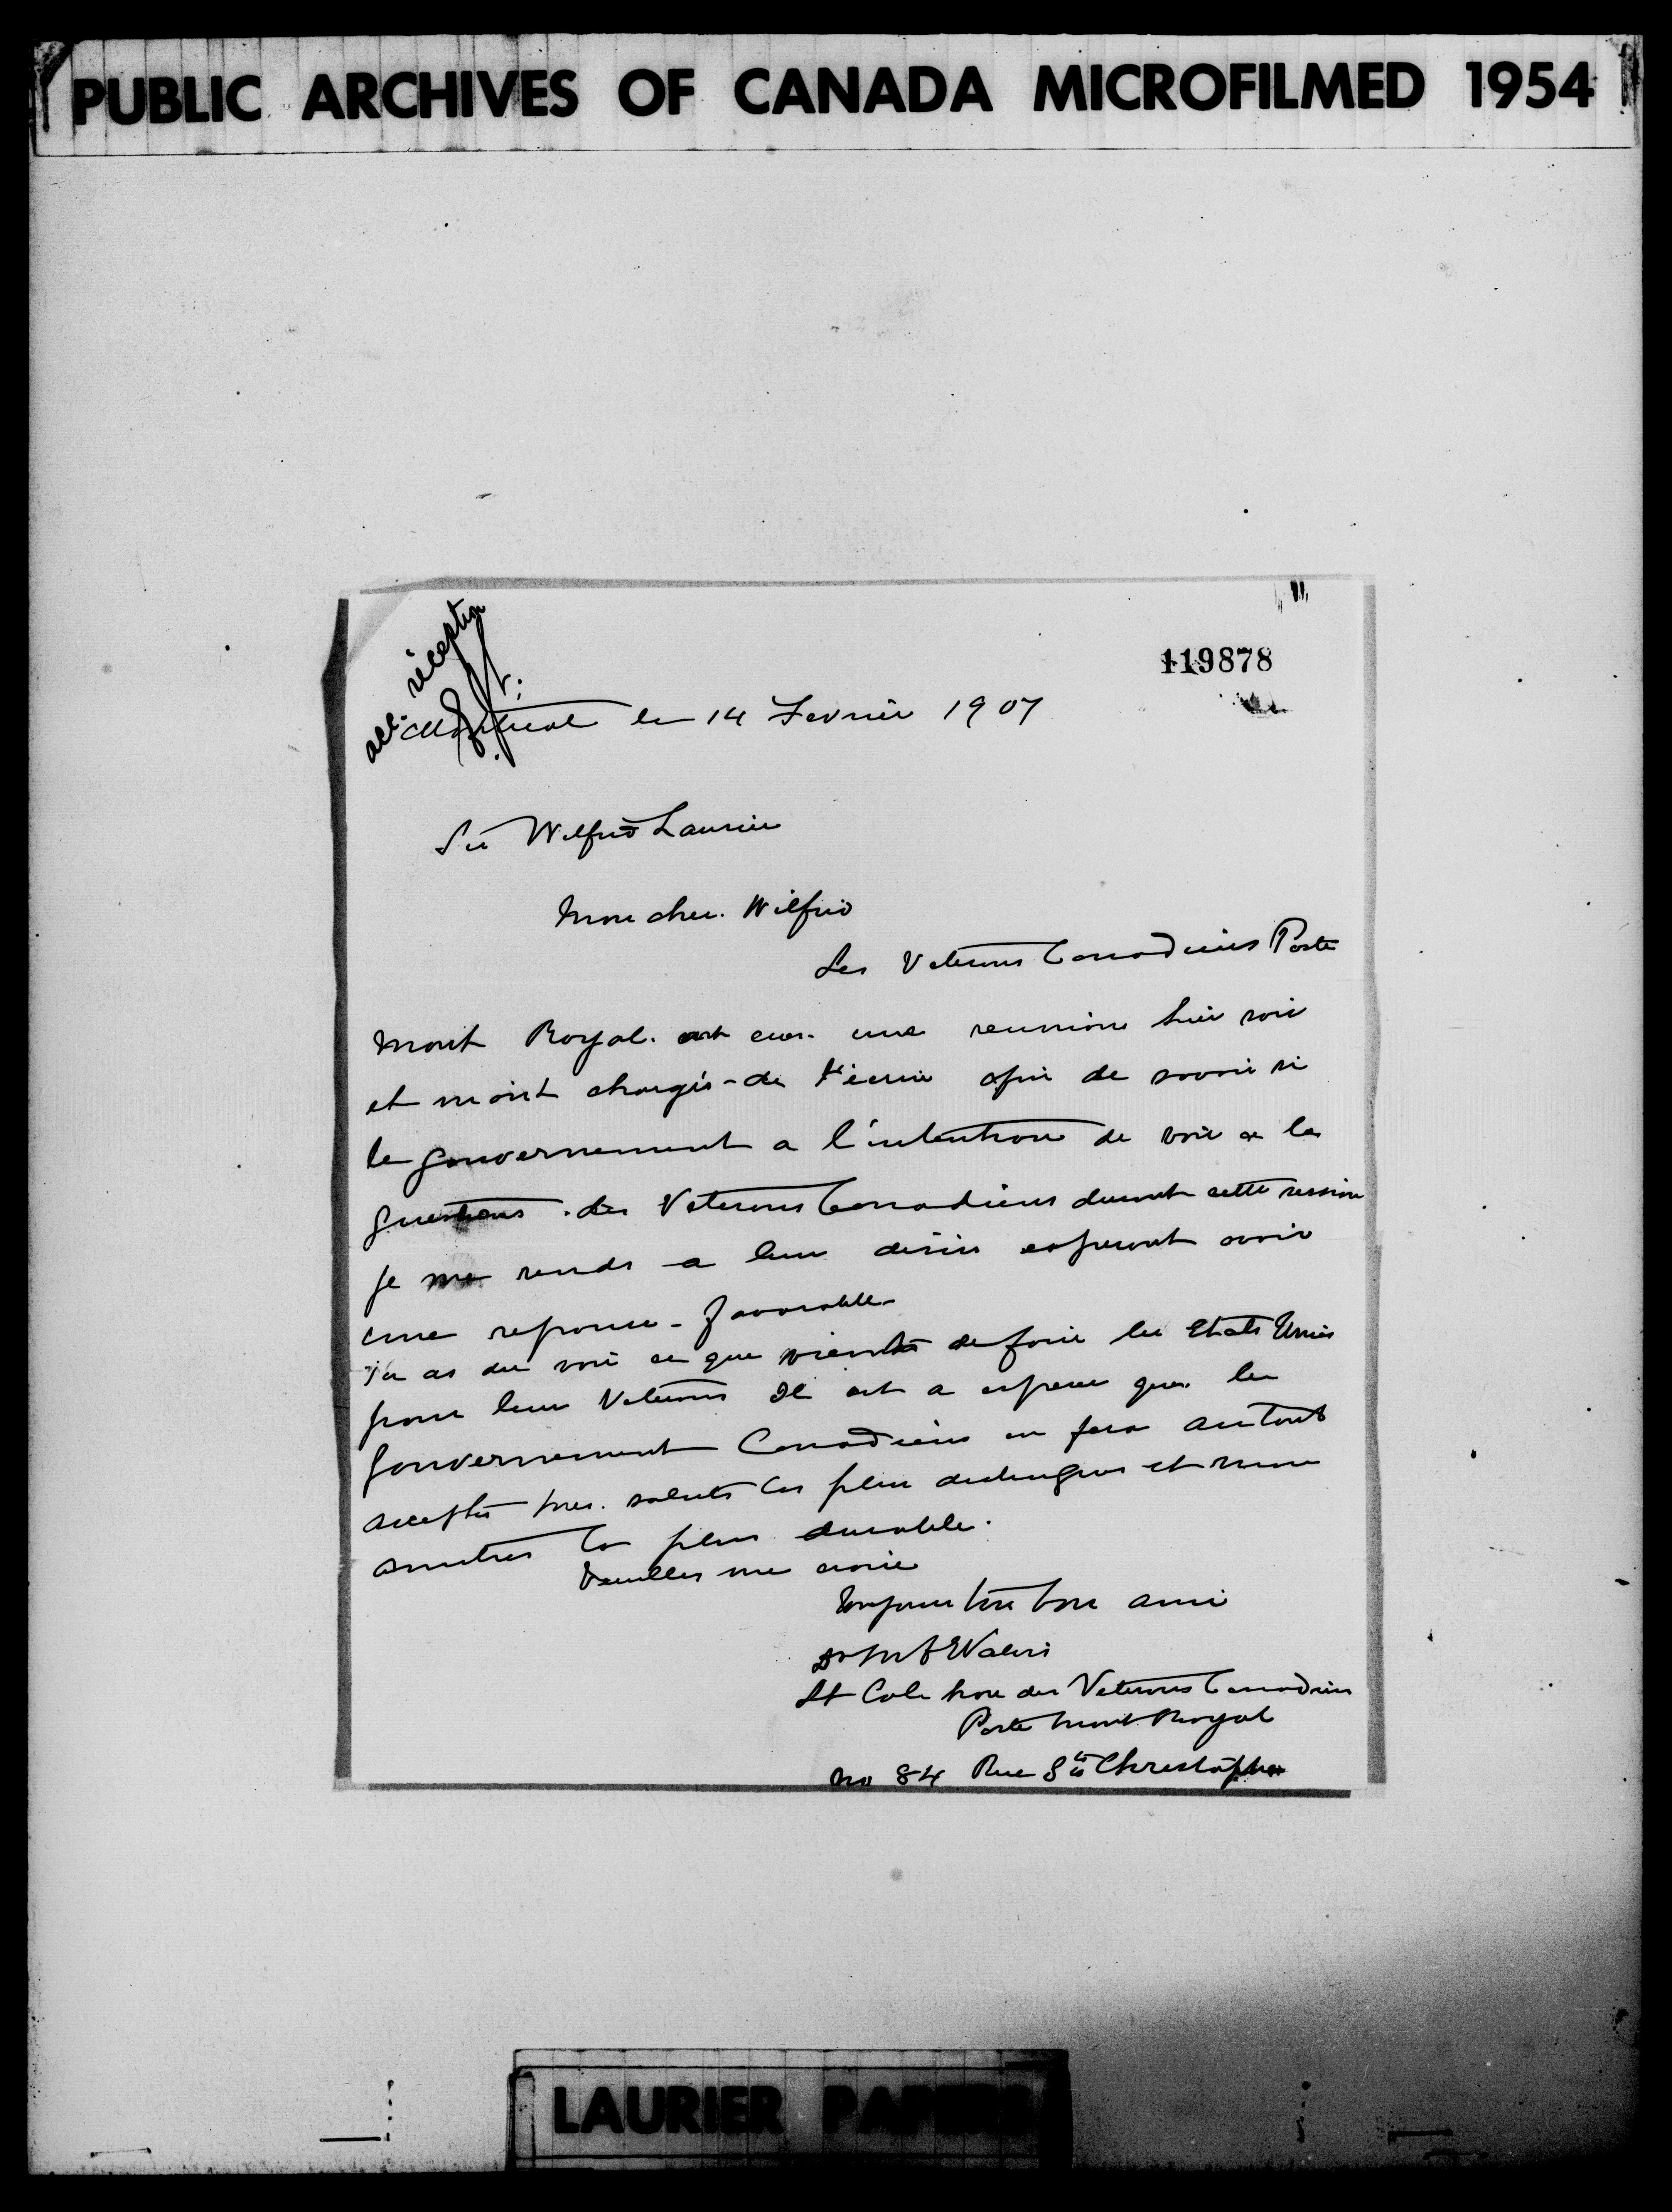 PUBLIC ARCHIVES OF CANADA MICROFILMED 1954
acc. réception
119878
Montreal le 14 Fevrier 1907
Sir Wilfrid Laurier
Mon cher Wilfrid
Les Veterans Canadiens Poste
Mont Royal. ont eus. une reunion hier soir
et m'ont chargés de t'ecrire afin de savoir si
le gouvernement a l'intention de voir a les
questions. des Veterans Canadiens durant cette session
je me rends a leur desirs esperant avoir
une reponse favorable
Tu as du voir ce que vient de faire les Etats Unis
pour leur Veterans Il est a esperer que le
gouvernement Canadiens en fera autant
acceptes mes saluts les plus distingues et mon
amities la plus durable.
Veuilles me croire
Toujours ton bon ami
Lt Col hon des Veterans Canadien
Poste Mont Royal
No 84 Rue St Christophe
LAURIER PAPERS